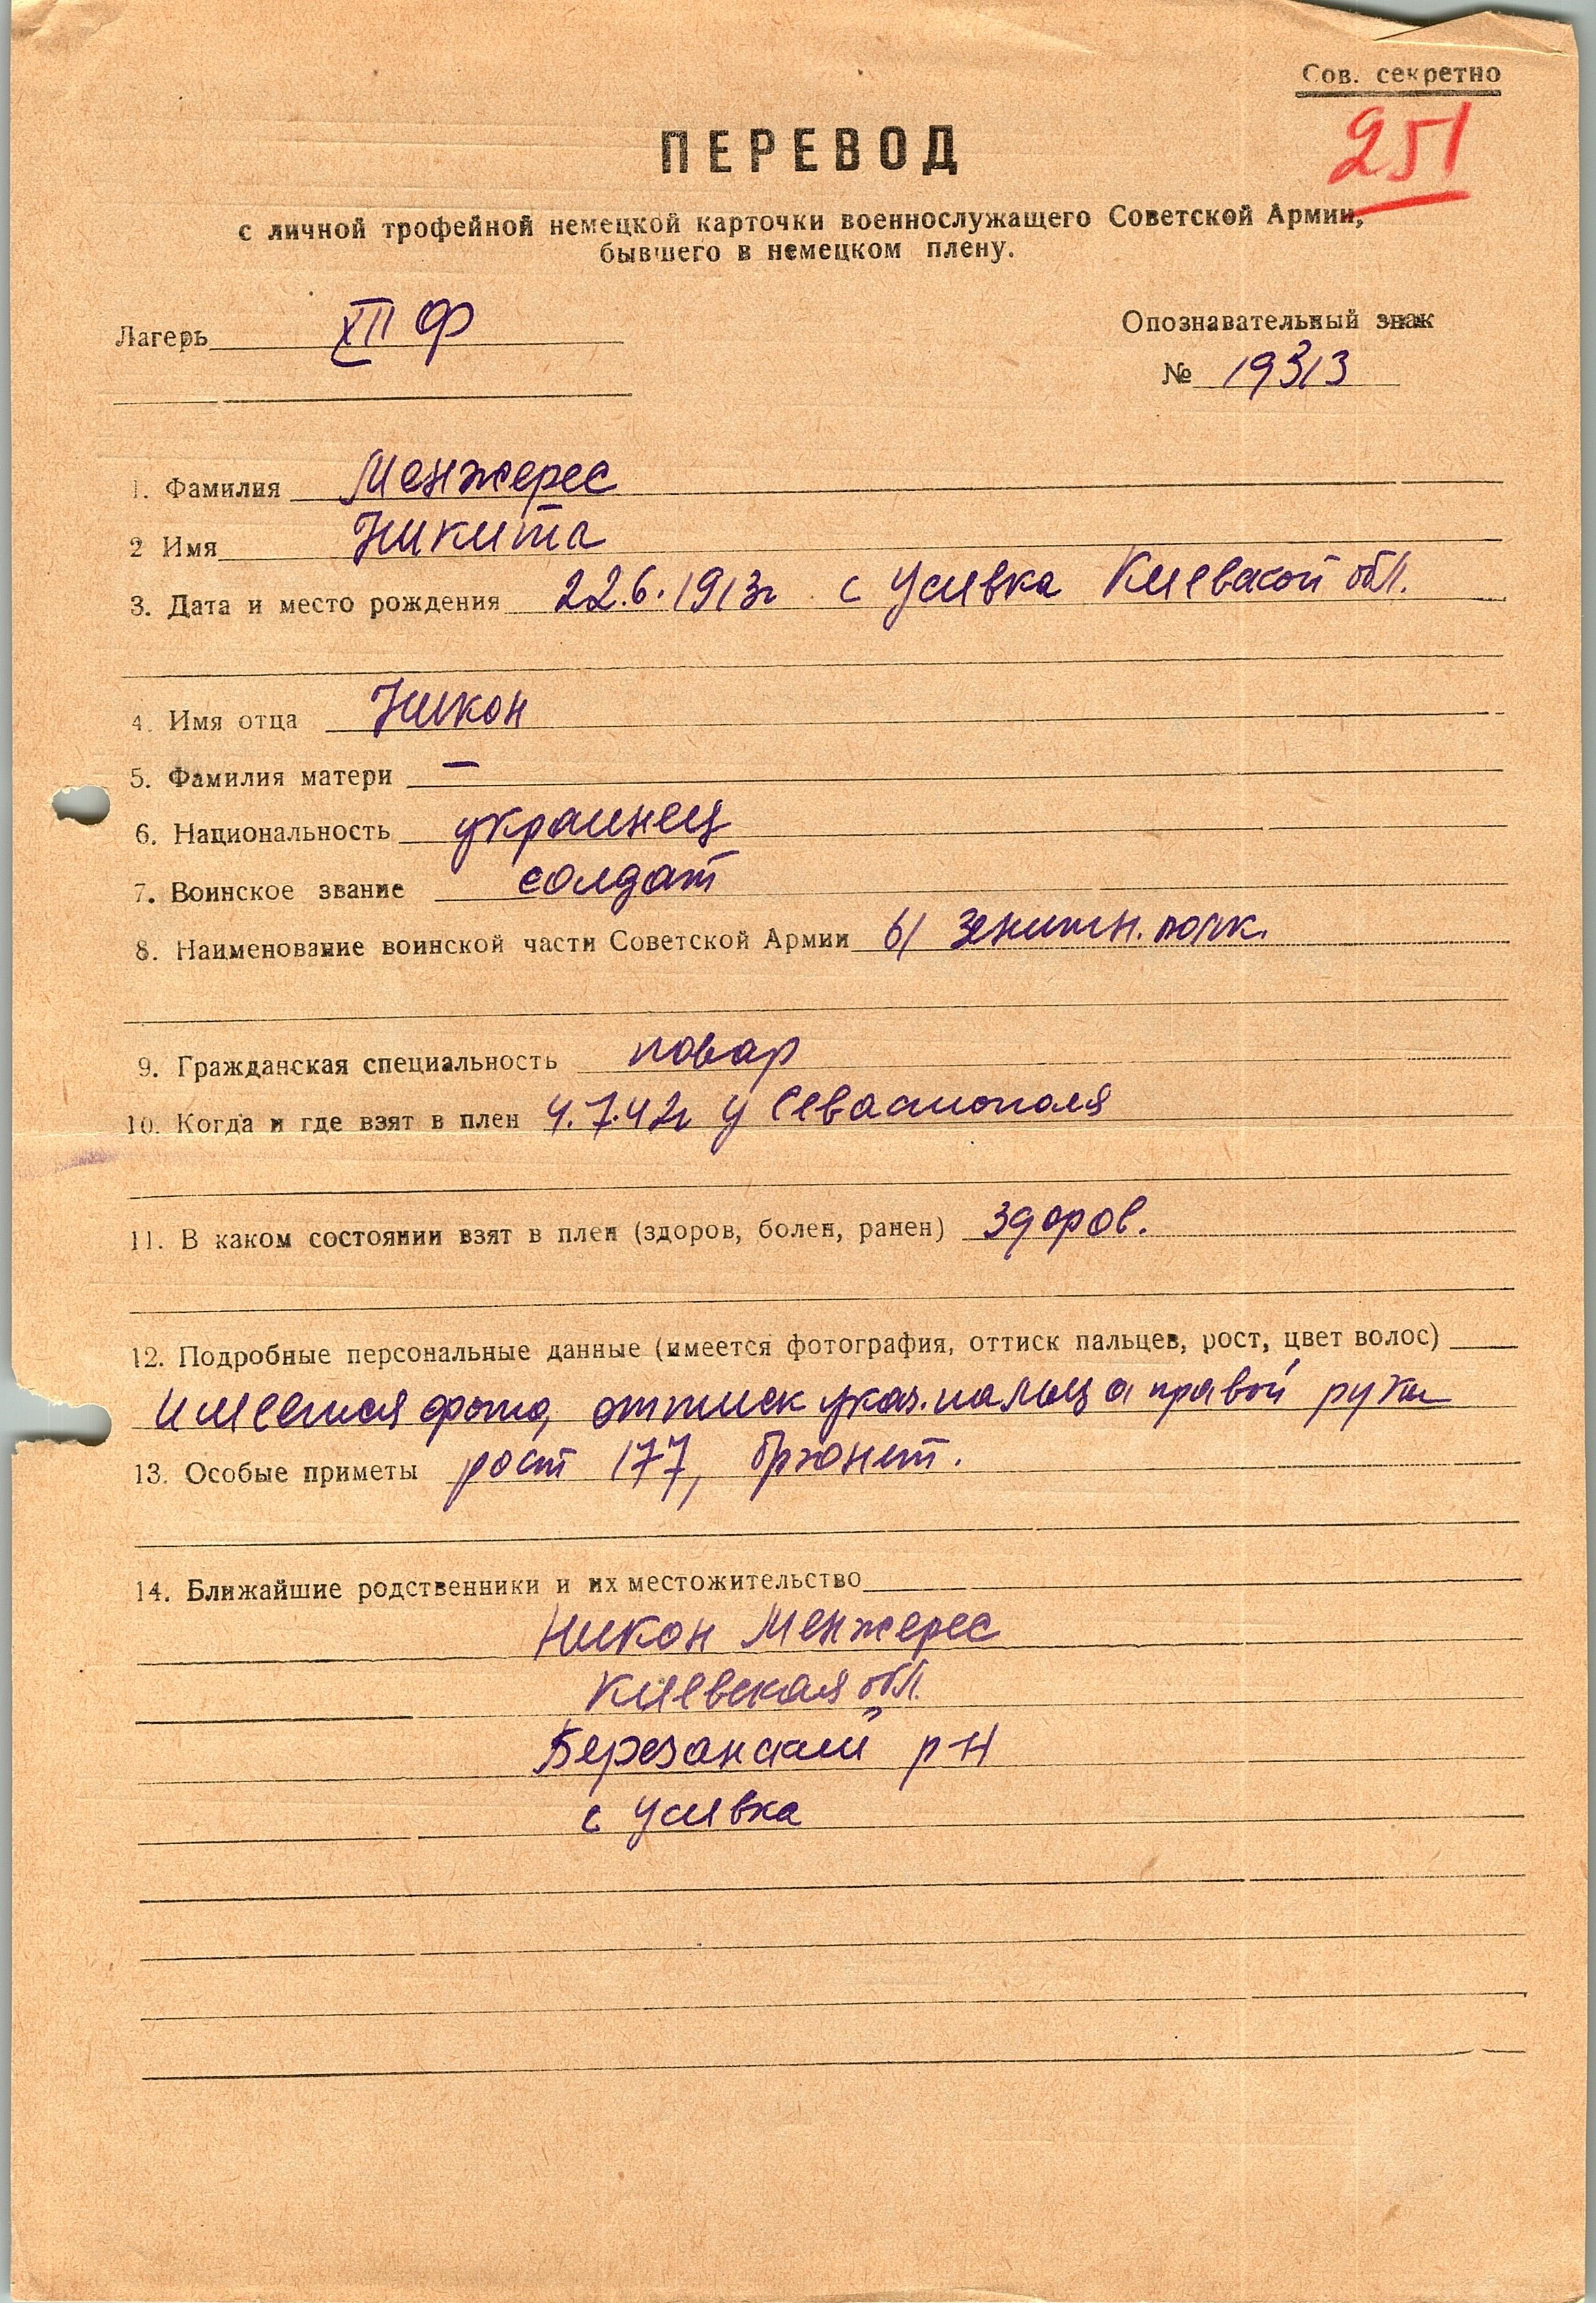 Сов. секретно
251
ПЕРЕВОД
с личной трофейной немецкой карточки военнослужащего Советской Армии,
бывшего в немецком плену.
Лагерь XII Ф
Опознавательный знак
№ 19313
1. Фамилия Менжерес
2 Имя Никита
3. Дата и место рождения 22.6.1913г с Усивка Киевской обл.
4. Имя отца Никон
5. Фамилия матери —
6. Национальность украинец
7. Воинское звание солдат
8. Наименование воинской части Советской Армии 61 зенитн. полк.
9. Гражданская специальность повар
10. Когда и где взят в плен 4.7.42г у Севастополя
11. В каком состоянии взят в плен (здоров, болен, ранен) здоров.
12. Подробные персональные данные (имеется фотография, оттиск пальцев, рост, цвет волос)
имеется фото, оттиск указ. пальца правой руки
13. Особые приметы рост 177, брюнет.
14. Ближайшие родственники и их местожительство
Никон Менжерес
Киевская обл.
Березанский р-н
с Усивка